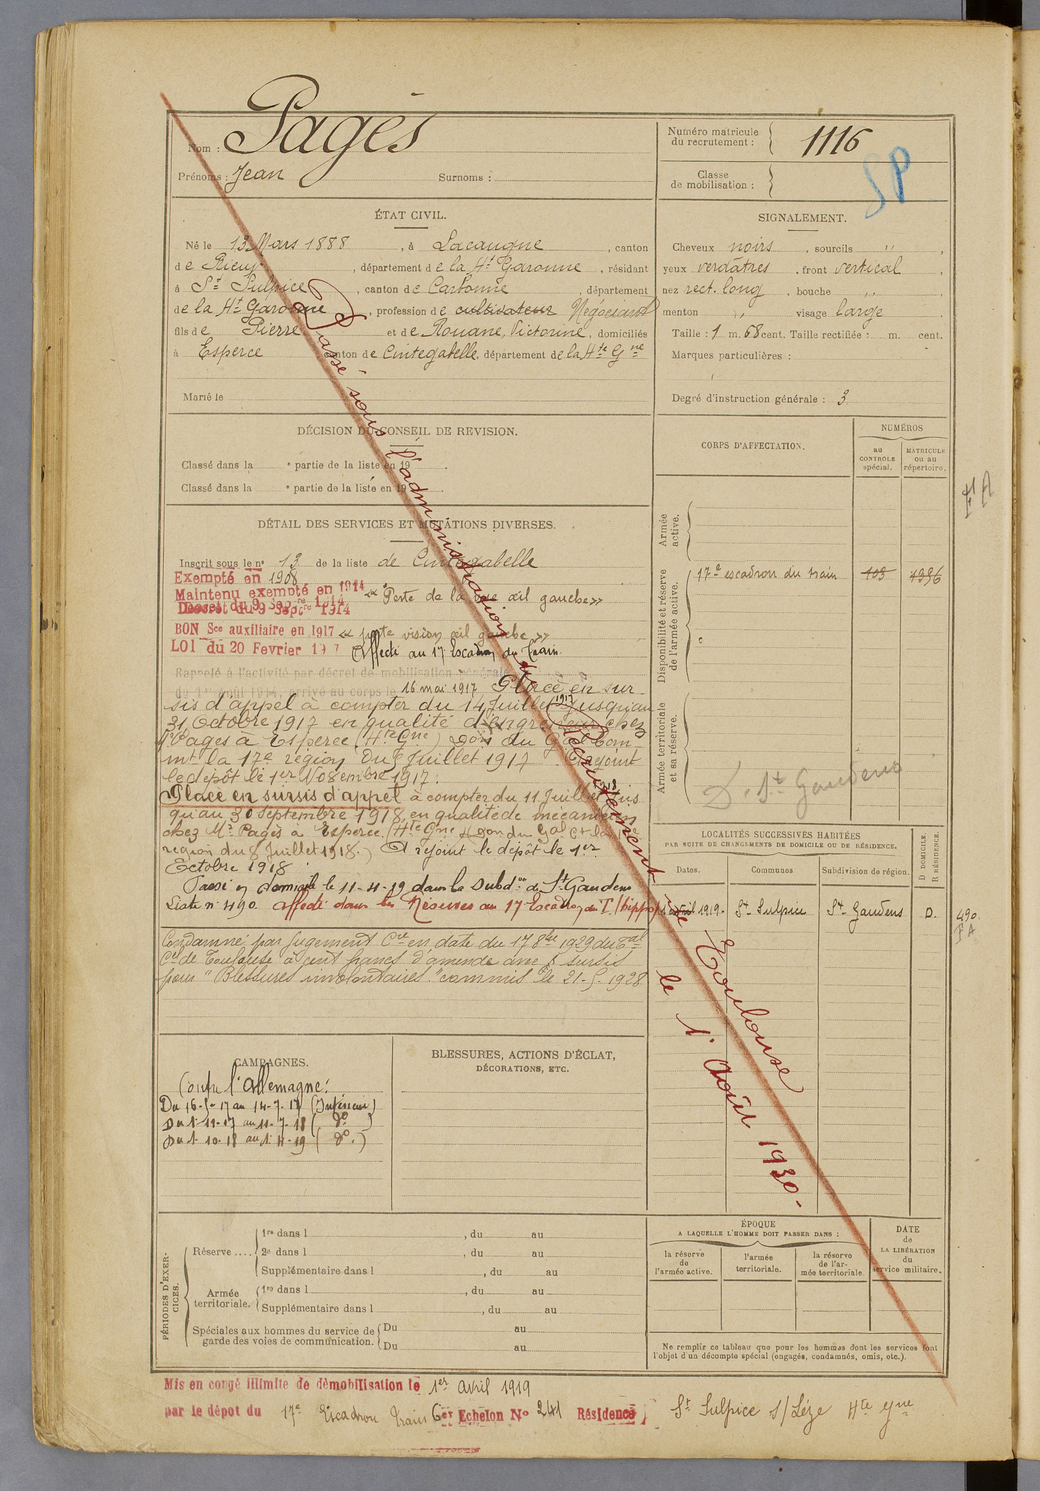 Nom : Pagès
Prénoms : Jean Surnoms :
Numéro matricule du recrutement : 1116
Classe de mobilisation :
SP
ÉTAT CIVIL.
Né le 13 Mars 1888, à Lacaugne, canton
de Rieux, département de la Hte Garonne, résidant
à St Sulpice, canton de Carbonne, département
de la Hte Garonne, profession de cultivateur Négociant
fils de Pierre et de Rouane, Victorine, domiciliés
à Esperce canton de Cintegabelle, département de la Hte Gne
Marié le
SIGNALEMENT.
Cheveux noirs, sourcils "
yeux verdâtres, front vertical
nez rect. long, bouche "
menton " visage large
Taille : 1 m. 68 cent. Taille rectifiée : m. cent.
Marques particulières :
Degré d'instruction générale : 3
DÉCISION DU CONSEIL DE REVISION.
Classé dans la e partie de la liste en 19
Classé dans la e partie de la liste en 19
CORPS D'AFFECTATION.
NUMÉROS
au CONTROLE spécial.
MATRICULE ou au répertoire.
Armée active.
Disponibilité et réserve de l'armée active.
17e escadron du train 103 4996
Armée territoriale et sa réserve.
D. St Gaudens
FA
DÉTAIL DES SERVICES ET MUTATIONS DIVERSES.
Inscrit sous le no 13 de la liste de Cintegabelle
Exempté en 1908
Maintenu exempté en 1914
Décret du 9 Sepre 1914
« Perte de la vue œil gauche »
BON Sce auxiliaire en 1917 « perte vision œil gauche »
LOI du 20 Février 1917 Affecté au 17 Escadron du Train
Rappelé à l'activité par décret de mobilisation générale
du 1er août 1914, arrivé au corps le 16 mai 1917 Placé en sur-
sis d'appel à compter du 14 Juillet 1917 jusqu'au
31 Octobre 1917 en qualité d' chez
Mr Pagès à Esperce (Hte Gne) Don du Gal Com-
mt la 17e région du Juillet 1917 A rejoint
le dépôt le 1er Novembre 1917.
Placé en sursis d'appel à compter du 11 Juillet jus-
qu'au 30 Septembre 1918, en qualité de mécanicien
chez Mr Pagès à Esperce (Hte Gne) Don du Gal Ct la 17e
région du 8 Juillet 1918.) A rejoint le dépôt le 1er
Octobre 1918
Passé en domicile le 11-4-19 dans la Subdon de St Gaudens
Liste no 490. Affecté dans les Réserves au 17 Escadron du T. (hippo)
Condamné par jugement Cel en date du 17 8bre 1929 du Tal
Cel de Toulouse à cent francs d'amende avec sursis
pour "Blessures involontaires" commis le 21-5-1928
Passé sous l'administration du Recrutement de Toulouse
le 1er Août 1930-
LOCALITÉS SUCCESSIVES HABITÉES
PAR SUITE DE CHANGEMENTS DE DOMICILE OU DE RÉSIDENCE.
Dates. Communes Subdivision de région. D DOMICILE. R RÉSIDENCE.
avril 1919. St Sulpice St Gaudens D. 490
FA
CAMPAGNES.
Contre l'Allemagne:
Du 16-5-17 au 14-7-17 (Intérieur)
Du 1-11-17 au 11-7-18 ( do )
Du 1-10-18 au 1-4-19 ( do. )
BLESSURES, ACTIONS D'ÉCLAT,
DÉCORATIONS, ETC.
PÉRIODES D'EXERCICES.
Réserve .... 1re dans l , du au
2e dans l , du au
Supplémentaire dans l , du au
Armée territoriale. 1re dans l , du au
Supplémentaire dans l , du au
Spéciales aux hommes du service de garde des voies de communication. Du au
Du au
ÉPOQUE
A LAQUELLE L'HOMME DOIT PASSER DANS :
la réserve de l'armée active.
l'armée territoriale.
la réserve de l'armée territoriale.
DATE de LA LIBÉRATION du service militaire.
Ne remplir ce tableau que pour les hommes dont les services font
l'objet d'un décompte spécial (engagés, condamnés, omis, etc.).
Mis en congé illimité de démobilisation le 1er Avril 1919
par le dépôt du 17e Escadron Train 6e Echelon No 241 Résidence St Sulpice s/Lèze Hte Gne